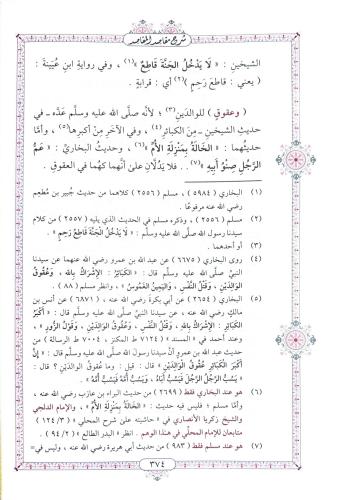 شرح مقاصد المقاصد
الشيخين : « لَا يَدْخُلُ الجَنَّةَ قَاطِعٌ »(١) ، وفي روايةِ ابنِ عُيَيْنَةَ :
( يعني : قاطعَ رَحِمٍ )(٢) أي : قرابةٍ .
( وعقوقٍ ) للوالدَينِ(٣) ؛ لأنَّه صلَّى الله عليه وسلَّم عدَّه ـ في
حديثِ الشيخينِ ـ مِنَ الكبائرِ(٤) ، وفي الآخرِ مِنْ أكبرِها(٥) ، وأمَّا
حديثُهما : « الخَالَةُ بِمَنْزِلَةِ الأُمِّ »(٦) ، وحديثُ البخاريِّ : « عَمُّ
الرَّجُلِ صِنْوُ أَبِيهِ »(٧) . . فلا يَدُلَّانِ علىٰ أنَّهما كهُما في العقوقِ .
(١) البخاري ( ٥٩٨٤ ) ، مسلم ( ٢٥٥٦ ) كلاهما من حديث جُبير بن مُطعِم
رضي الله عنه مرفوعًا .
(٢) مسلم ( ٢٥٥٦ ) ، وذكره مسلم في الحديث الذي يليه ( ٢٥٥٧ ) من كلام
سيدنا رسول الله صلَّى الله عليه وسلَّم : « لَا يَدْخُلُ الجَنَّةَ قَاطِعُ رَحِمٍ » .
(٣) أو أحدهما .
(٤) روى البخاري ( ٦٦٧٥ ) عن عبد الله بن عمرو رضي الله عنهما عن سيدنا
النبيِّ صلَّى الله عليه وسلَّم قال : « الكَبَائِرُ : الإِشْرَاكُ بِاللهِ ، وَعُقُوقُ
الوَالِدَيْنِ ، وَقَتْلُ النَّفْسِ ، وَاليَمِينُ الغَمُوسُ » ، وانظر مسلم ( ٨٨ )
(٥) البخاري ( ٢٦٥٤ ) عن أبي بكرة رضي الله عنه ، ( ٦٨٧١ ) عن أنس بن
مالكٍ رضي الله عنه ، عن سيدنا النبيِّ صلَّى الله عليه وسلَّم قال : « أَكْبَرُ
الكَبَائِرِ : الإِشْرَاكُ بِاللهِ ، وَقَتْلُ النَّفْسِ ، وَعُقُوقُ الوَالِدَيْنِ ، وَقَوْلُ الزُّورِ » ،
وعند أحمد في « المسند » ( ٧١٢٤ ط المكنز ، ٧٠٠٤ ط الرسالة ) من
حديث عبد الله بن عمرو أنَّ سيدنا رسول الله صلَّى الله عليه وسلَّم قال : « إِنَّ
أَكْبَرَ الكَبَائِرِ عُقُوقُ الوَالِدَيْنِ » ، قال : قيل : وما عقوق الوالدين؟ قال :
« يَسُبُّ الرَّجُلُ الرَّجُلَ فَيَسُبُّ أَبَاهُ ، وَيَسُبُّ أُمَّهُ فَيَسُبُّ أُمَّهُ » .
(٦) هو عند البخاري فقط ( ٢٦٩٩ ) من حديث البراء بن عازب رضي الله عنه ،
وأمَّا مسلم ؛ فليس فيه حديث : « الخَالَةُ بِمَنْزِلَةِ الأُمِّ » ، والإمام الدلجي
والشيخ زكريا الأنصاري في « حاشيته على شرح المحلي » ( ٣/ ١٢٤ )
متابعان للإمام المحلي في هذا الوهم . انظر « البدر الطالع » ( ٢/ ٩٤ ) .
(٧) هو عند مسلم فقط ( ٩٨٣ ) من حديث أبي هريرة رضي الله عنه ، وليس في=
٣٧٤